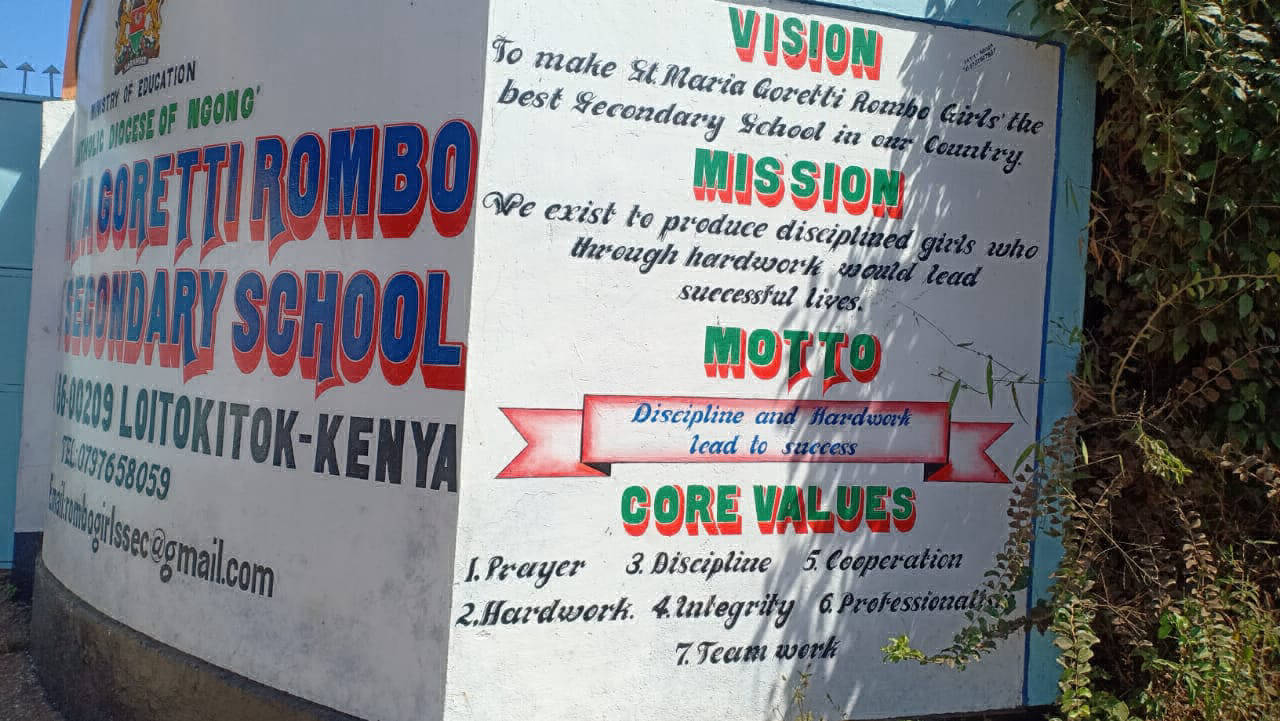 MINISTRY OF EDUCATION
CATHOLIC DIOCESE OF NGONG'
GORETTI ROMBO
SECONDARY SCHOOL
00209 LOITOKITOK-KENYA
TEL:0797658059
Email:rombogirlssec@gmail.com
VISION
To make St. Maria Goretti Rombo Girls' the
best Secondary School in our Country.
MISSION
We exist to produce disciplined girls who
through hardwork would lead
successful lives.
MOTTO
Discipline and Hardwork
lead to success
CORE VALUES
1. Prayer 3. Discipline 5. Cooperation
2. Hardwork. 4. Integrity 6.
7. Team work